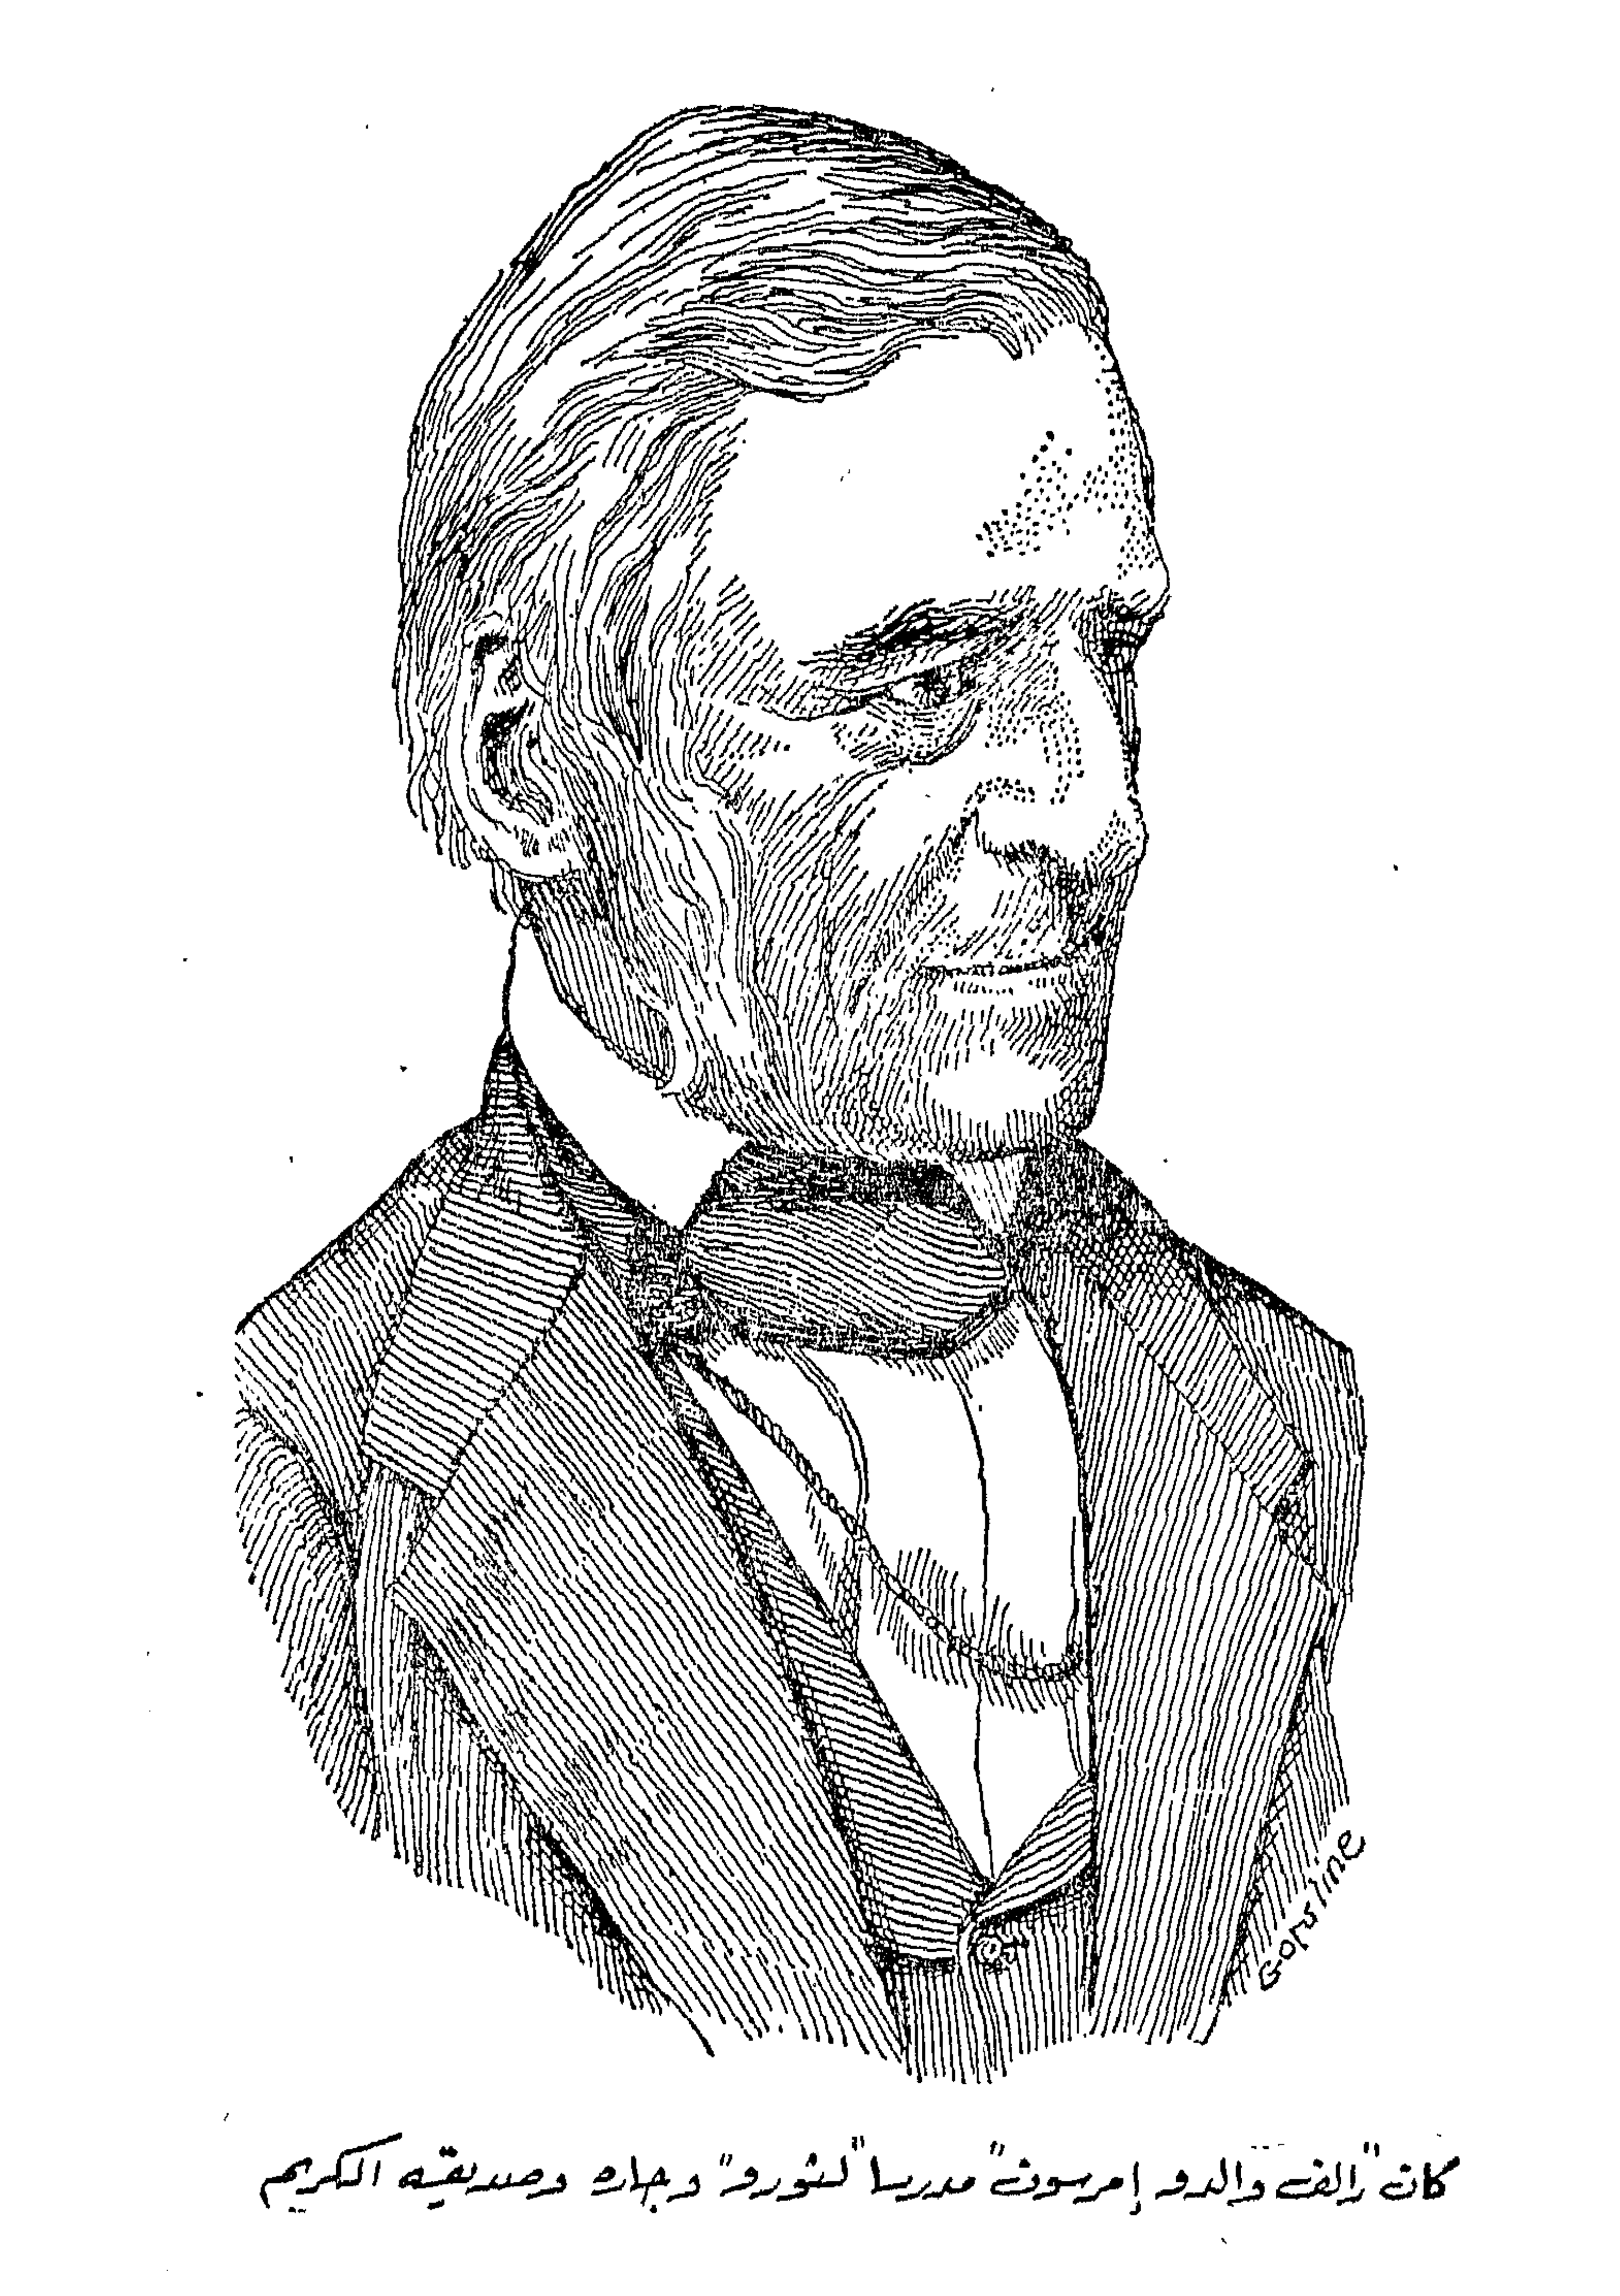 Gorsline
كان "رالف والدو إمرسون" مدرسا "لثورو" وجاره وصديقه الكريم